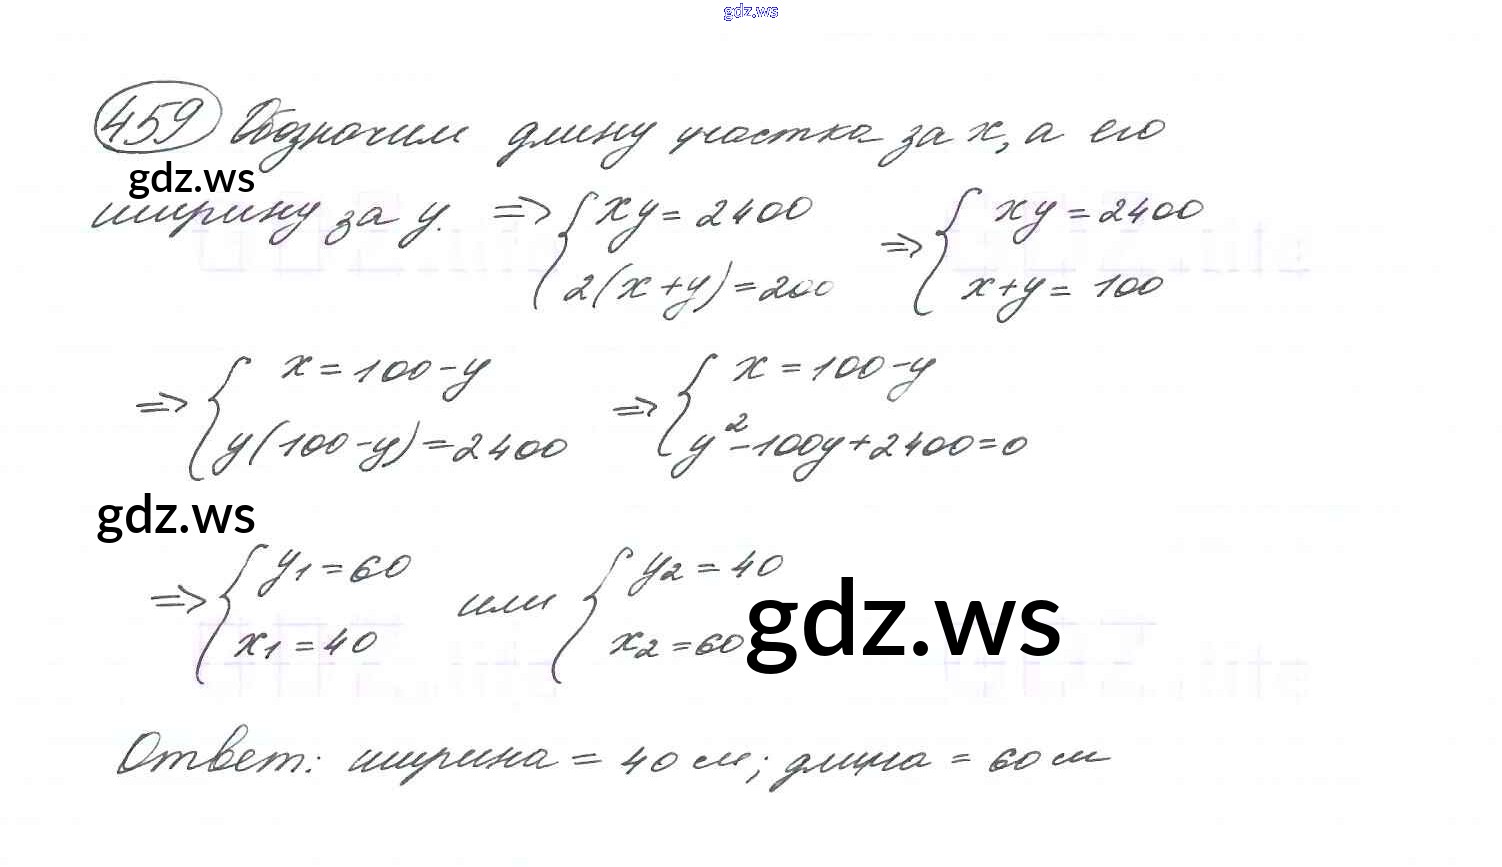 gdz.ws
459 Обозначим длину участка за x, а его
gdz.ws
ширину за y. => { xy = 2400 => { xy = 2400
2(x+y) = 200 x+y = 100
=> { x = 100-y => { x = 100-y
y(100-y) = 2400 y²-100y+2400=0
gdz.ws
=> { y₁ = 60 или { y₂ = 40
x₁ = 40 x₂ = 60
gdz.ws
Ответ: ширина = 40 м; длина = 60 м